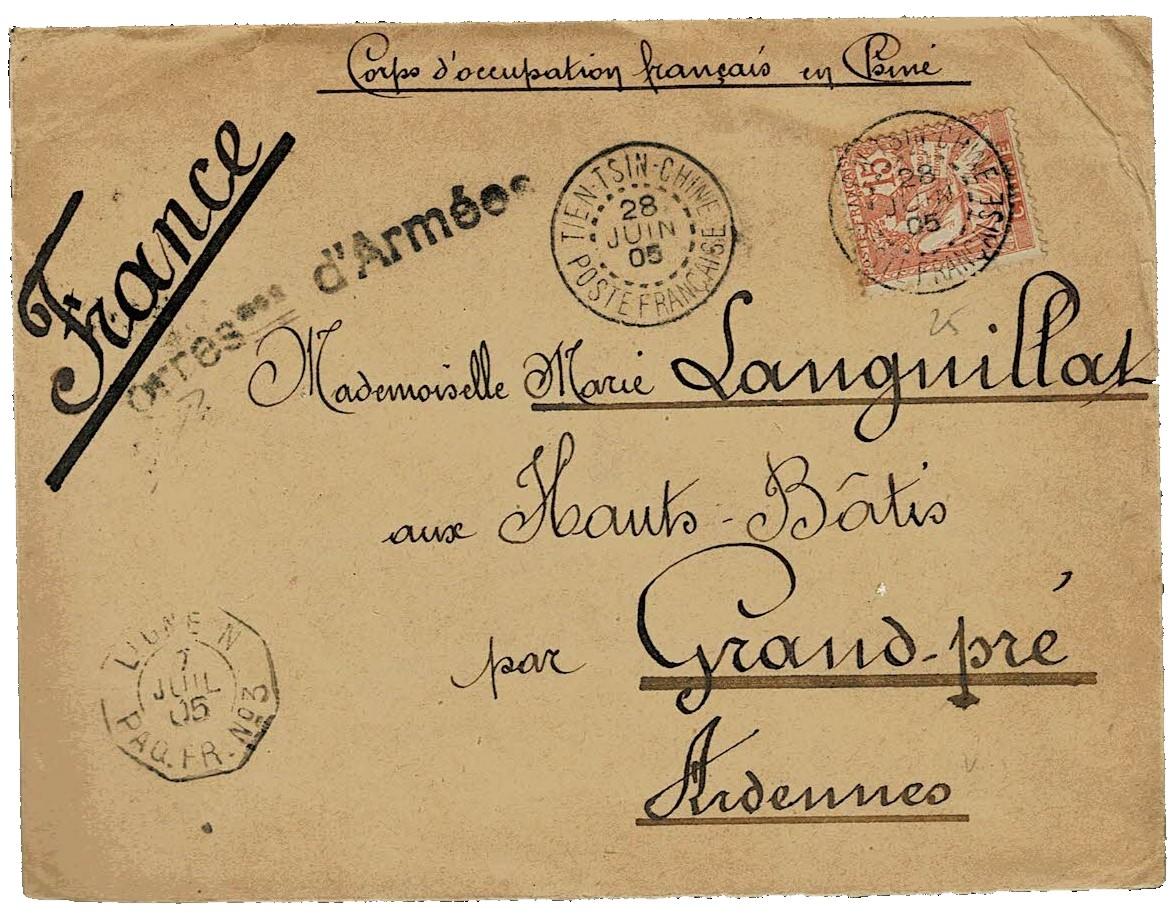 Corps d'occupation français en Chine
France
d'Armées
TIEN-TSIN-CHINE
28
JUIN
05
POSTE FRANÇAISE
15
CHINE
28
JUIN
05
25
Mademoiselle Marie Languillat
aux Hauts-Bâtis
par Grand-pré
Ardennes
LIGNE N
7
JUIL
05
PAQ. FR. Nº 3